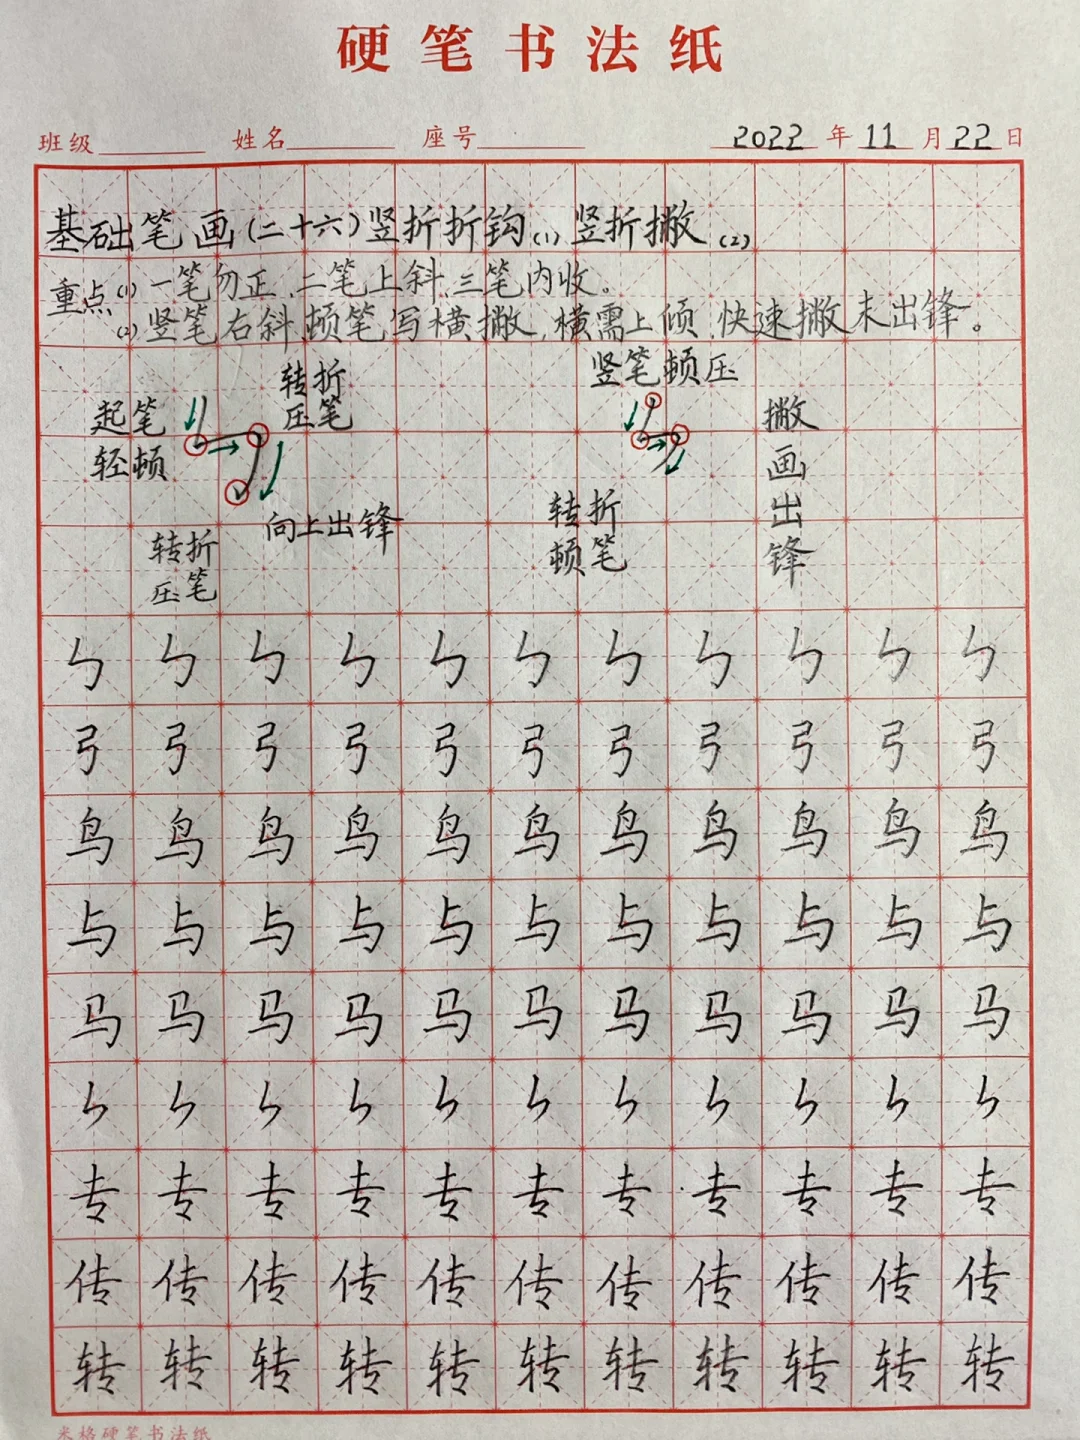 硬笔书法纸
班级 姓名 座号 2022 年 11 月 22 日
基础笔画(二十六)竖折折钩(1) 竖折撇(2)
重点(1) 一笔勿正、二笔上斜、三笔内收。
(2) 竖笔右斜、顿笔写横撇、横需上倾、快速撇末出锋。
起笔
轻顿
转折
压笔
转折
压笔
向上出锋
竖笔顿压
转折
顿笔
撇
画
出
锋
ㄣ ㄣ ㄣ ㄣ ㄣ ㄣ ㄣ ㄣ ㄣ ㄣ ㄣ
弓 弓 弓 弓 弓 弓 弓 弓 弓 弓 弓
鸟 鸟 鸟 鸟 鸟 鸟 鸟 鸟 鸟 鸟 鸟
与 与 与 与 与 与 与 与 与 与 与
马 马 马 马 马 马 马 马 马 马 马
ㄣ ㄣ ㄣ ㄣ ㄣ ㄣ ㄣ ㄣ ㄣ ㄣ ㄣ
专 专 专 专 专 专 专 专 专 专 专
传 传 传 传 传 传 传 传 传 传 传
转 转 转 转 转 转 转 转 转 转 转
米格硬笔书法纸